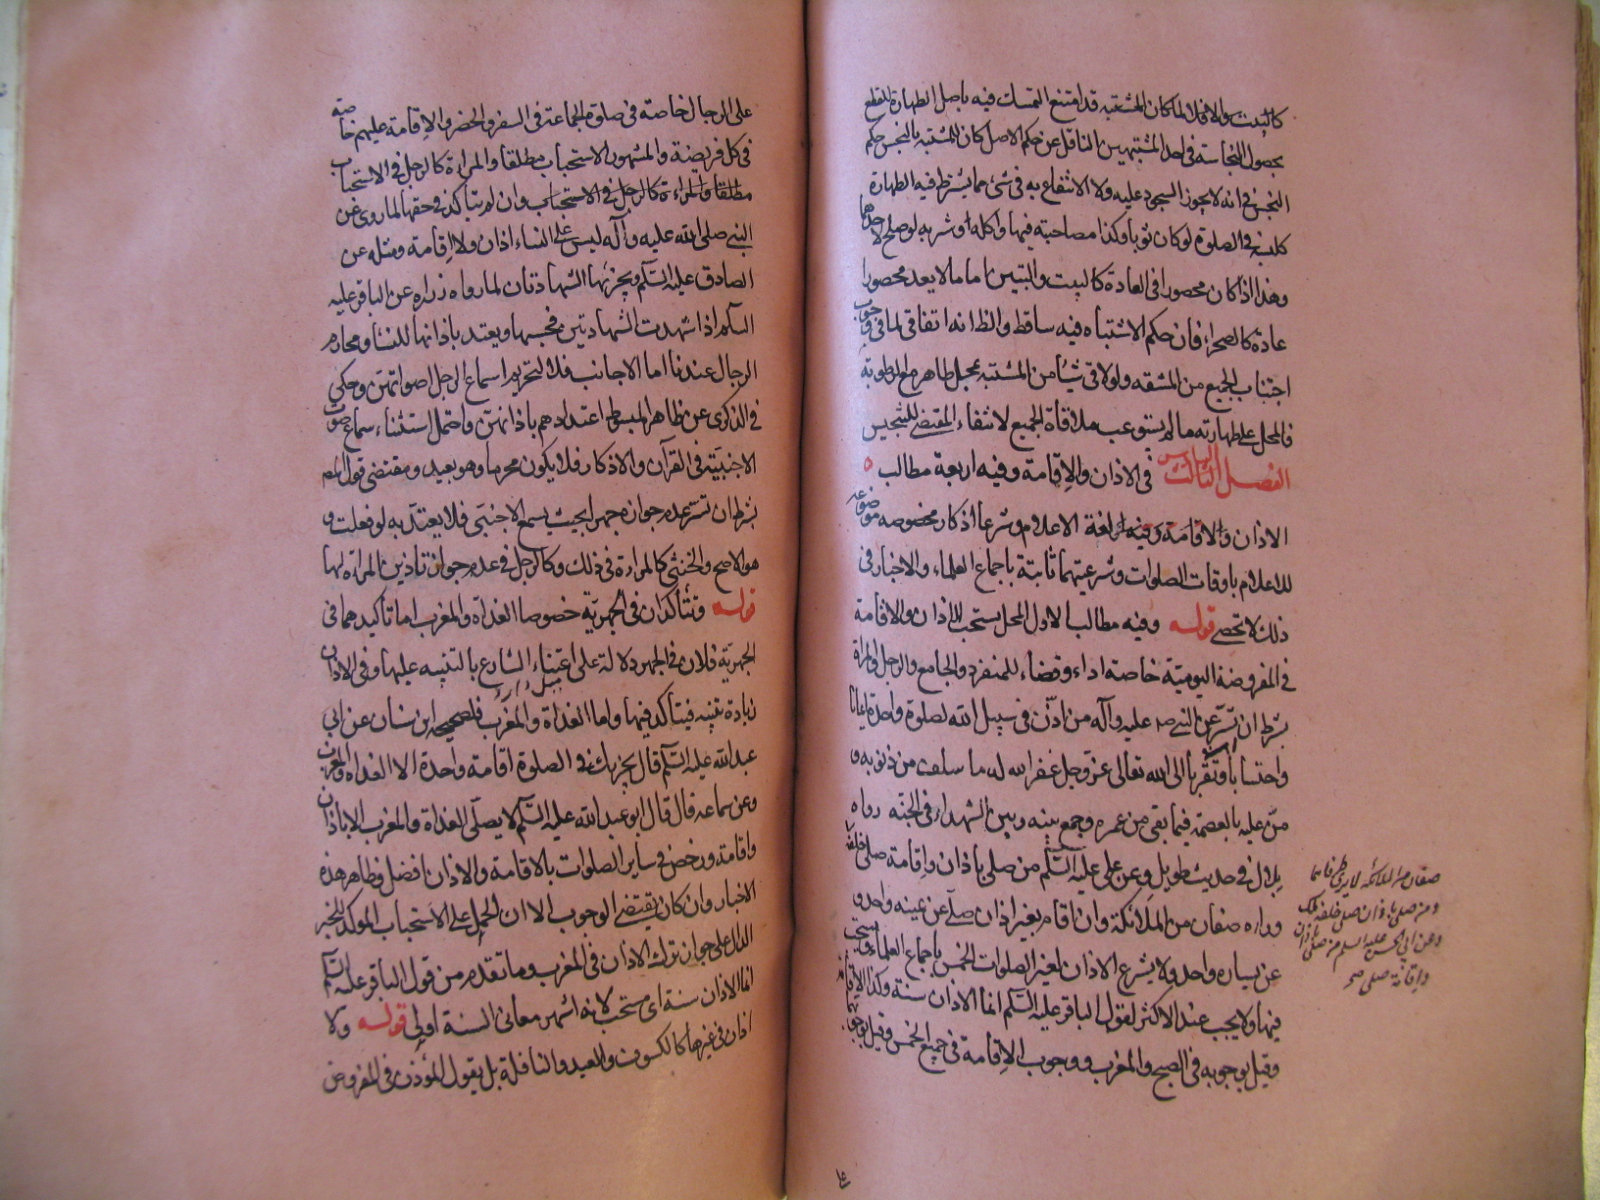 كالبيت والا فلا لما كان المشتبه قد امتنع التمسك فيه باصل الطهارة للقطع
بحصول النجاسة فى احد المشتبهين الناقل عن حكم الاصل كان للمشتبه بالنجس حكم
النجس فى انه لا يجوز السجود عليه ولا الانتفاع به فى شئ مما يشترط فيه الطهارة
كلبسه فى الصلوة لو كان ثوبا وكذا مصاحبته فيها واكله او شربه لو صلح لاحدهما
وهذا اذا كان محصورا فى العادة كالبيت والبيتين اما ما لا يعد محصورا
عادة كالصحراء فان حكم الاشتباه فيه ساقط والظ انه اتفاقى لما فى وجوب
اجتناب الجميع من المشقه ولو لاقى شيئا من المشتبه بمحل طاهر مع الرطوبة
فالمحل على طهارته ما لم يستوعب ملاقاة الجميع لانتفاء المقتضى للتنجيس
الفصل الثالث السادس فى الاذان والاقامة وفيه اربعة مطالب
الاذان والاقامة لغة الاعلام وشرعا اذكار مخصوصه موضوعه
للاعلام باوقات الصلوات وشرعيتهما ثابتة باجماع العلماء والاخبار فى
ذلك لا تحصى قوله وفيه مطالب الاول المحل يستحب الاذان والاقامة
فى المفروضة اليومية خاصة اداء وقضاء للمنفرد والجامع والرجل والمراة
بشرط ان تسر عن النبى صه عليه وآله من اذّن فى سبيل الله لصلوة واحدة ايمانا
واحتسابا وتقربا الى الله تعالى عز وجل غفر الله له ما سلف من ذنوبه و
منّ عليه بالعصمة فيما بقى من عمره وجمع بينه وبين الشهداء فى الجنة رواه
بلال فى حديث طويل وعن على عليه السّلم من صلى باذان واقامة صلى خلفه
وراءه صفان من الملائكة وان اقام بغير اذان صلّى عن يمينه واحد و
عن يساره واحد ولا يشرع الاذان لغير الصلوات الخمس باجماع العلماء ويستحب
فيها ولا يجب عند الاكثر لقول الباقر عليه السّلم انما الاذان سنة وكذا الاقامة
وقيل بوجوبه فى الصبح والمغرب ووجوب الاقامة فى جميع الخمس وقيل بوجوبهما
صفان من الملائكة لا يرى طرفاهما
ومن صلى باذان صلى خلفه ملك
وعن ابى الحسن عليه السلم من صلى باذان
واقامة صلى صح
على الرجال خاصة فى صلوة الجماعة فى السفر والحضر والاقامة عليهم خاصة
فى كل فريضة والمشهور الاستحباب مطلقا والمراة كالرجل فى الاستحباب
مطلقا والمراءة كالرجل فى الاستحباب وان لم يتاكد فى حقها لما روى عن
النبى صلى الله عليه وآله ليس على النساء اذان ولا اقامة ومثله عن
الصادق عليه السّلم ويجزئها الشهادتان لما رواه زراره عن الباقر عليه
السلم اذا شهدت الشهادتين فحسبها ويعتد باذانها للنساء ومحارم
الرجال عندنا اما الاجانب فلا لتحريم اسماع الرجل اصواتهن وحكى
فى الذكرى عن ظاهر المبسوط اعتدادهم باذانهن واحتمل استثناء سماع صوت
الاجنبية فى القرآن والاذكار فلا يكون محرما وهو بعيد ومقتضى قول المص
بشرط ان تسر عدم جوازه جهرا بحيث يسمع الاجنبى فلا يعتد به لو فعلت و
هو الاصح والخنثى كالمراءة فى ذلك وكالرجل فى عدم جواز تاذين المراة لها
قوله وتتأكدان فى الجهرية خصوصا الغداة والمغرب اما تاكيدهما فى
الجهرية فلان فى الجهر دلالة على اعتناء الشارع بالتنبيه عليها وفى الاذان
زيادة تنبيه فيتاكد فيها واما الغداة والمغرب فلصحيحه ابن سنان عن ابى
عبد الله عليه السّلم قال يجزيك فى الصلوة اقامة واحدة الا الغداة والمغرب
وعن سماعه قال قال ابو عبد الله عليه السّلم لا يصلّى الغداة والمغرب الا باذان
واقامة ورخص فى ساير الصلوات بالاقامة والاذان افضل وظاهر هذه
الاخبار وان كان يقتضى الوجوب الا ان الحمل على الاستحباب المؤكد للخبر
الدال على جواز ترك الاذان فى المغرب وما تقدم من قول الباقر عليه السّلم
انما الاذان سنة اى مستحب لانه اشهر معانى السنة اولى قوله ولا
اذان فى غيرها كالكسوف والعيد والنافلة بل يقول المؤذن فى المفروض